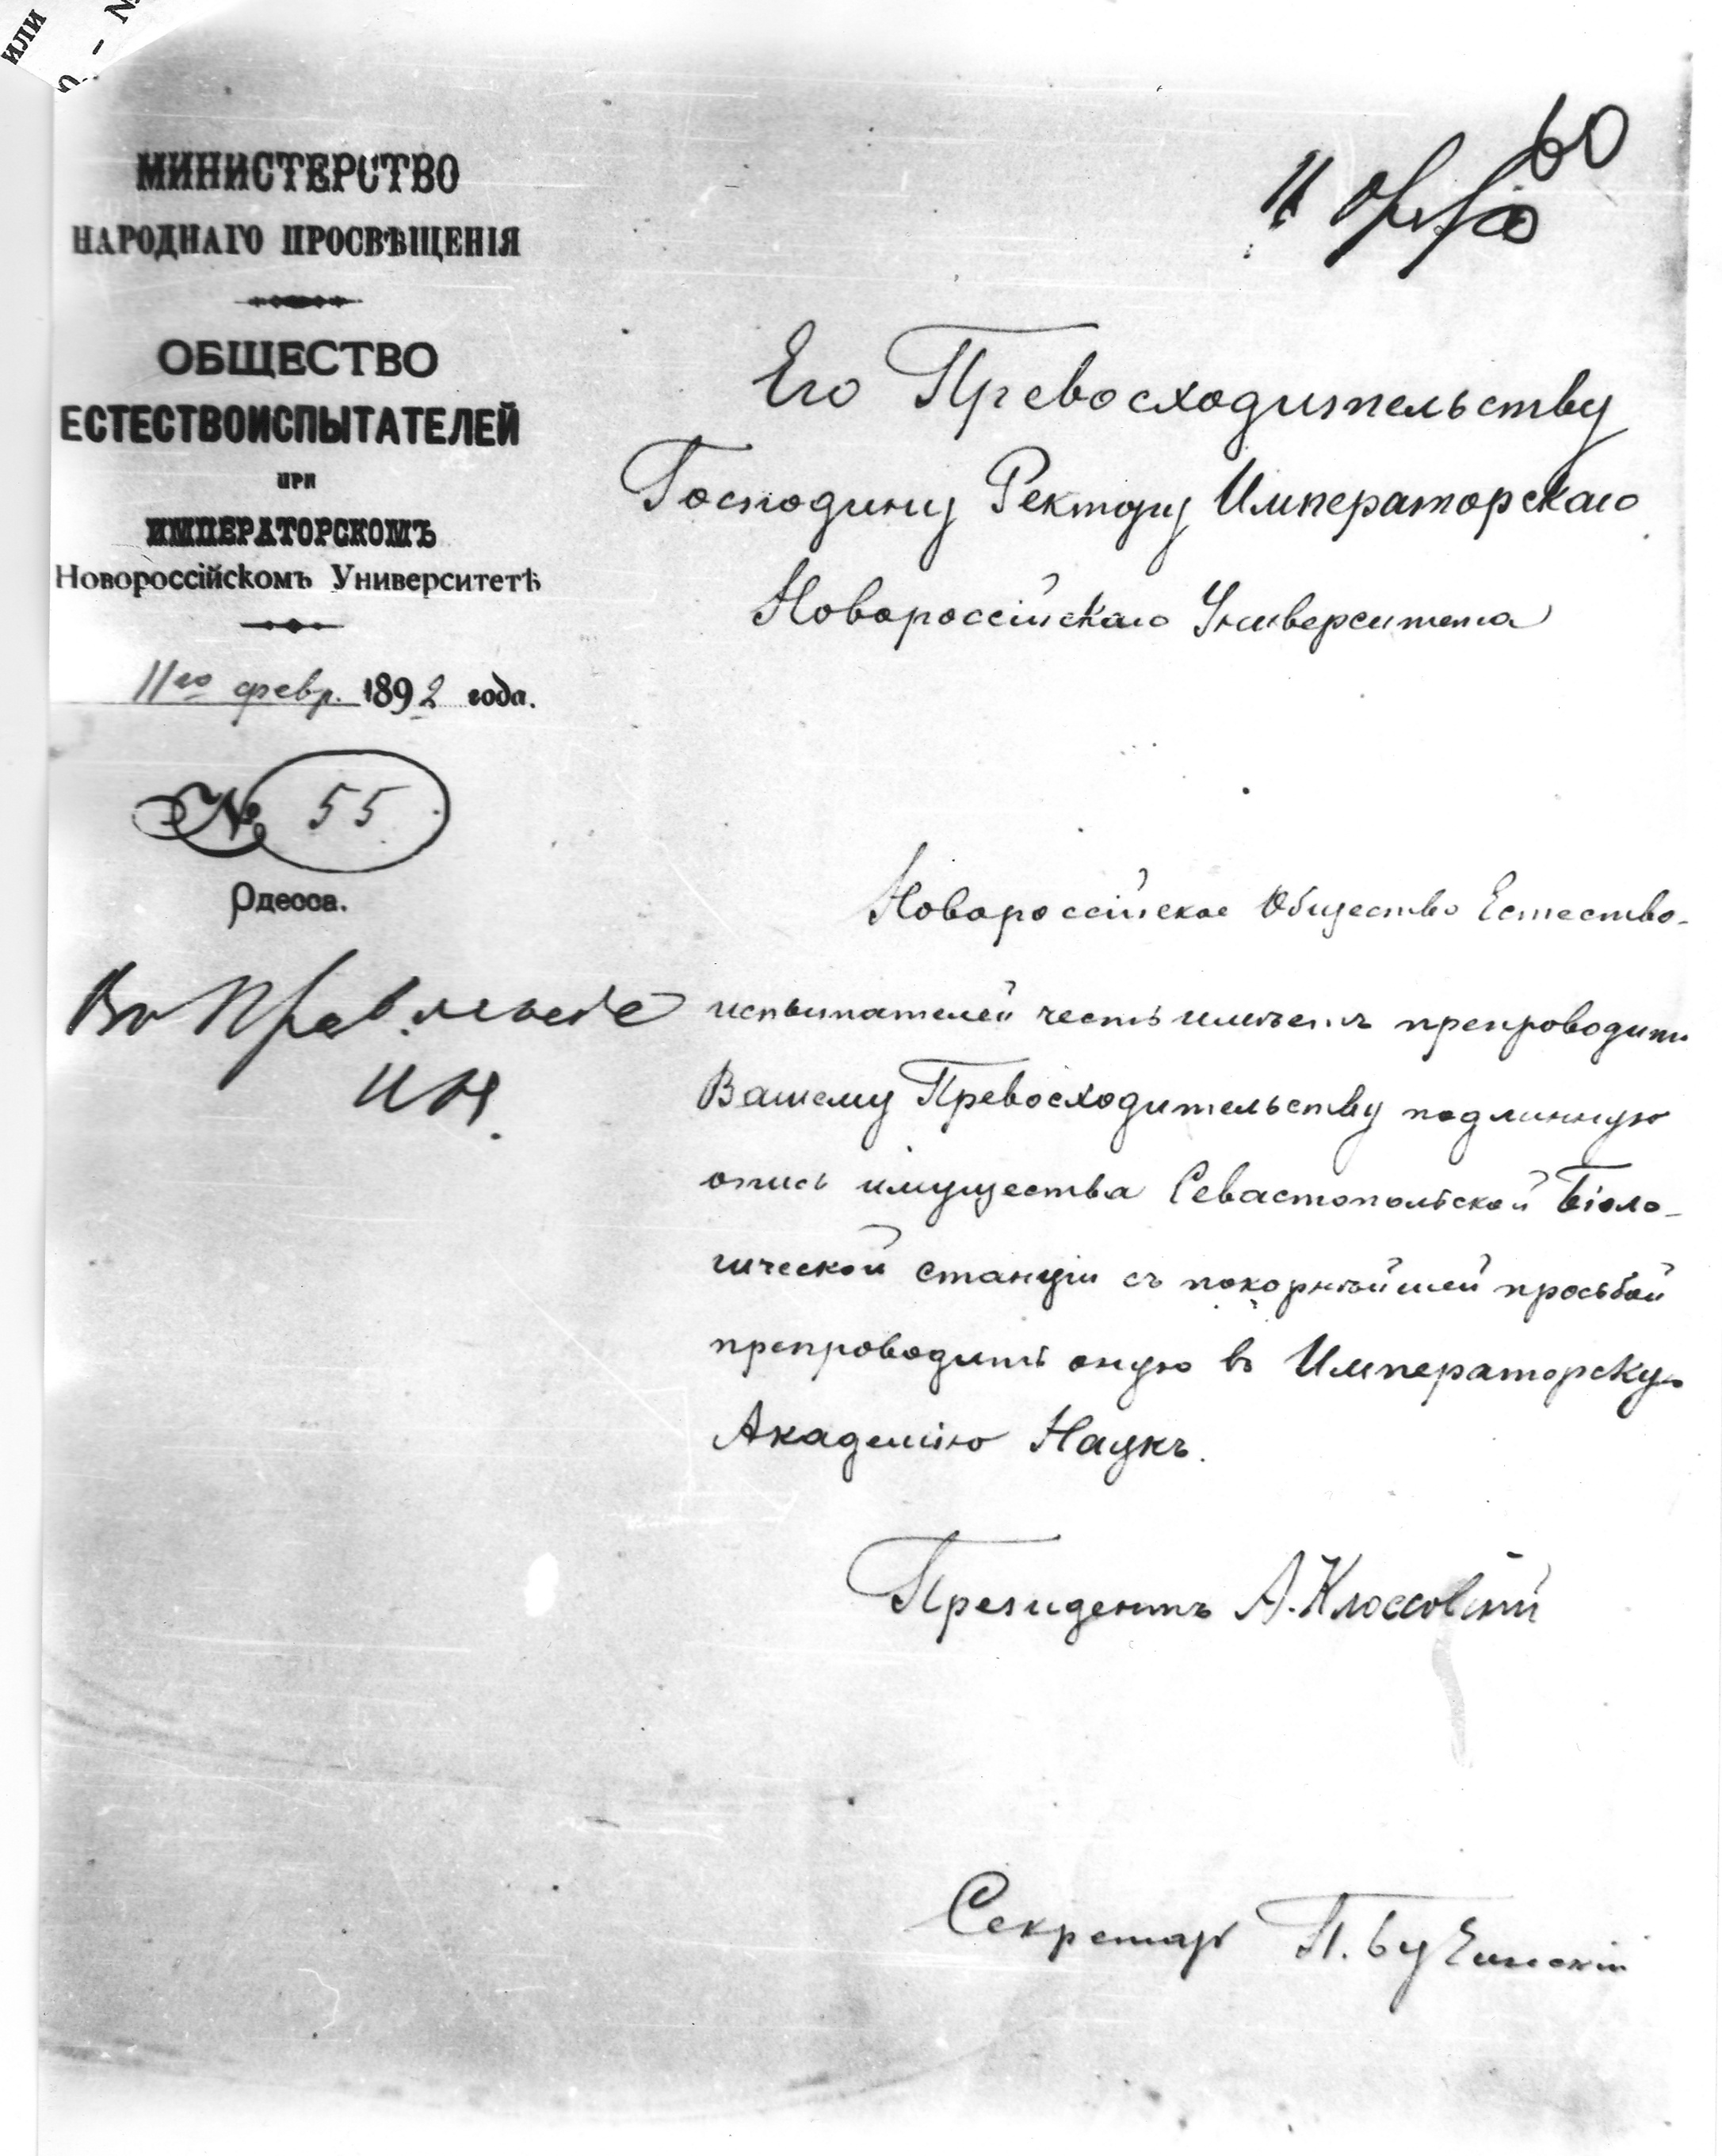 или
60
МИНИСТЕРСТВО
НАРОДНАГО ПРОСВѢЩЕНІЯ
ОБЩЕСТВО
ЕСТЕСТВОИСПЫТАТЕЛЕЙ
ПРИ
ИМПЕРАТОРСКОМЪ
Новороссійскомъ Университетѣ
11го февр. 1892 года.
№ 55
Одесса.
Въ Правленіе
Его Превосходительству
Господину Ректору Императорскаго
Новороссійскаго Университета
Новороссійское Общество Естество-
испытателей честь имѣетъ препроводить
Вашему Превосходительству подлинную
опись имущества Севастопольской Біоло-
гической станціи съ покорнѣйшей просьбой
препроводить оную въ Императорскую
Академію Наукъ.
Президентъ А. Клоссовскій
Секретарь П. Бучинскій